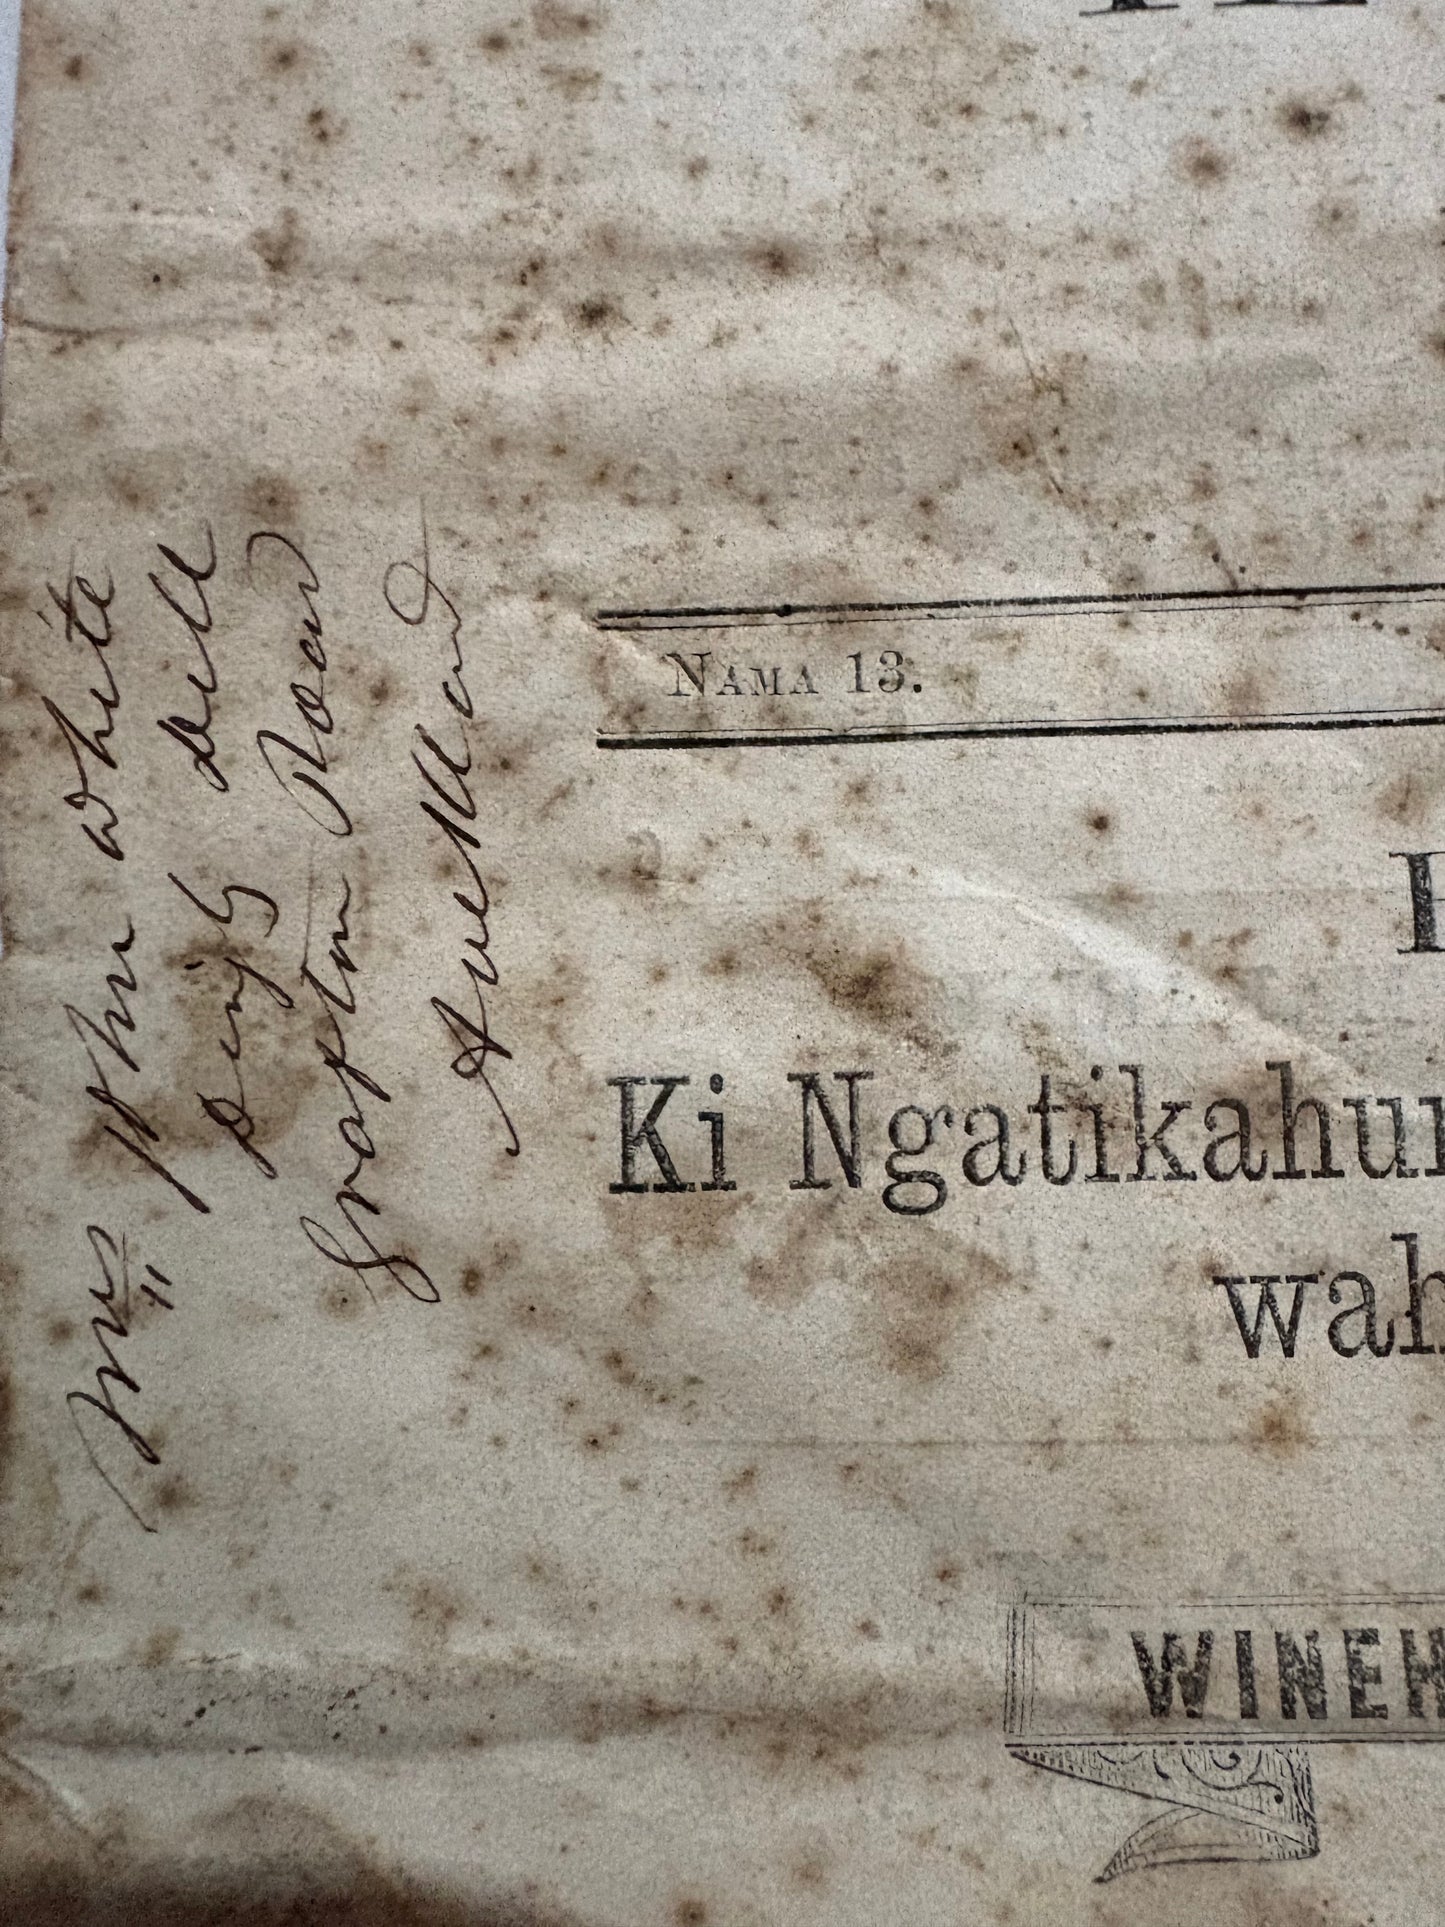 Mrs John White
Grafton Road
Auckland
NAMA 13.
Ki Ngatikahu
wah
WINEH